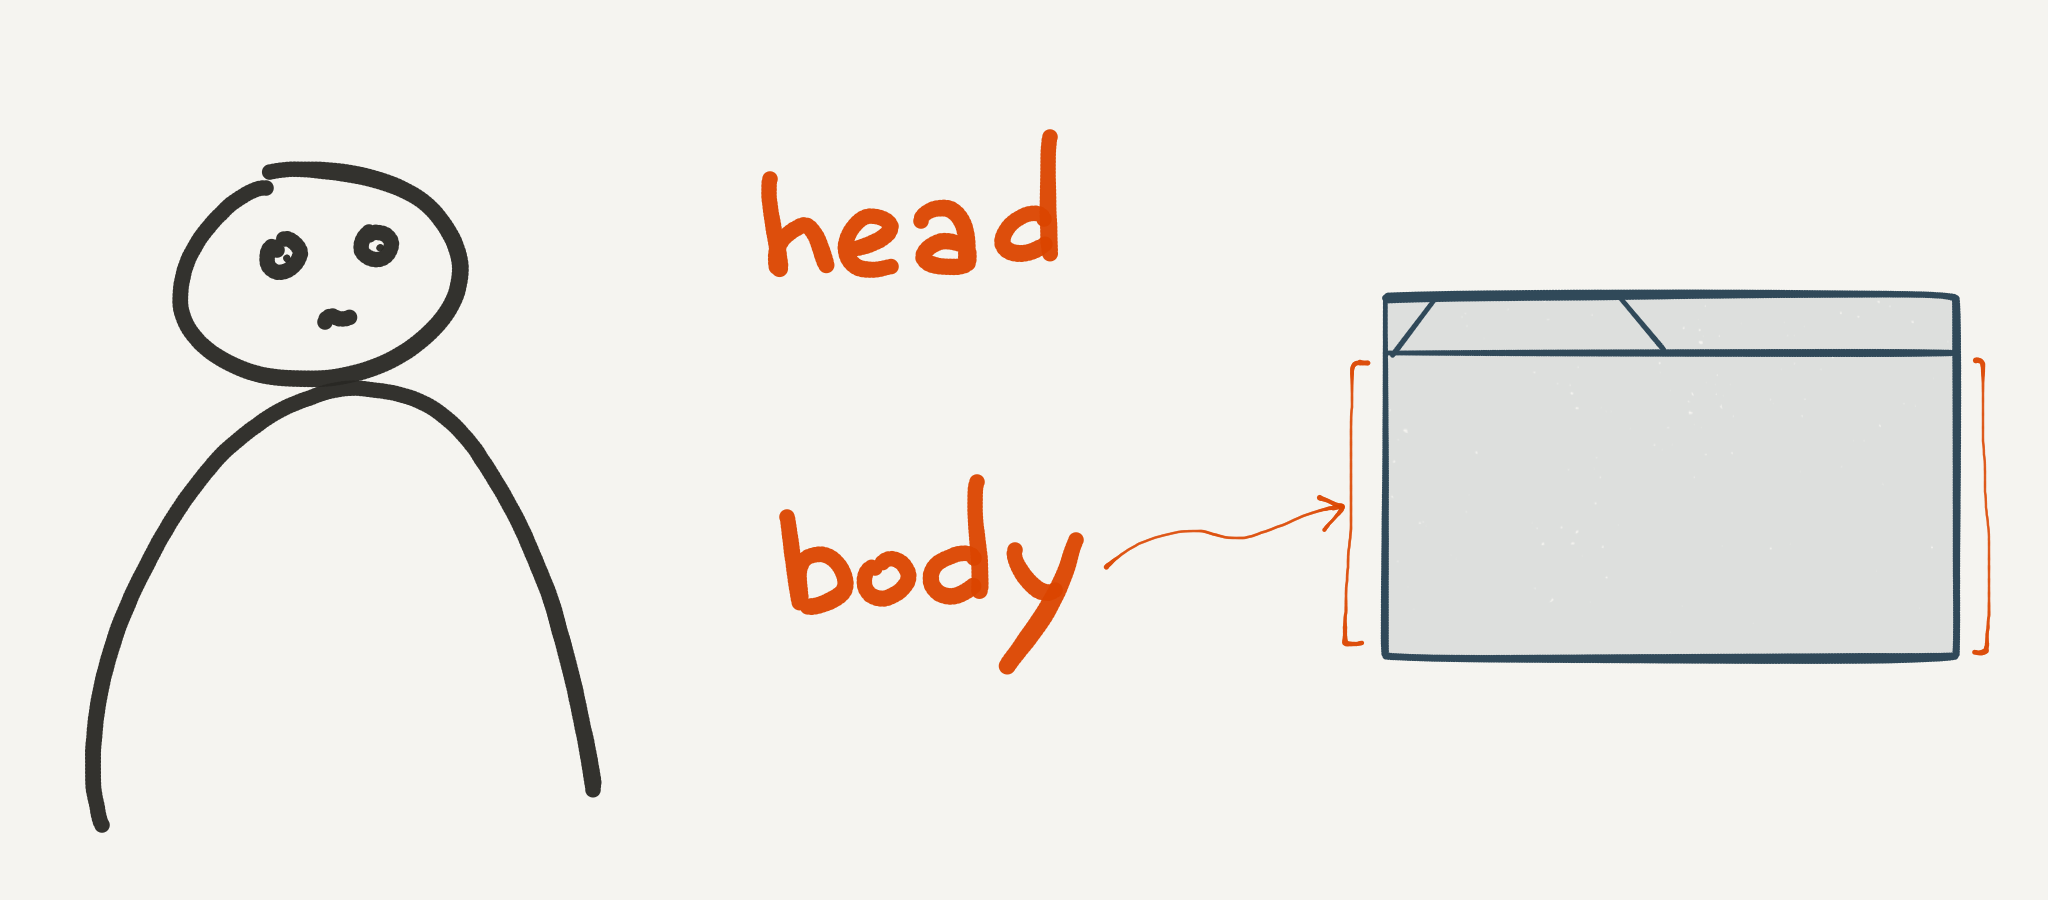 head
body